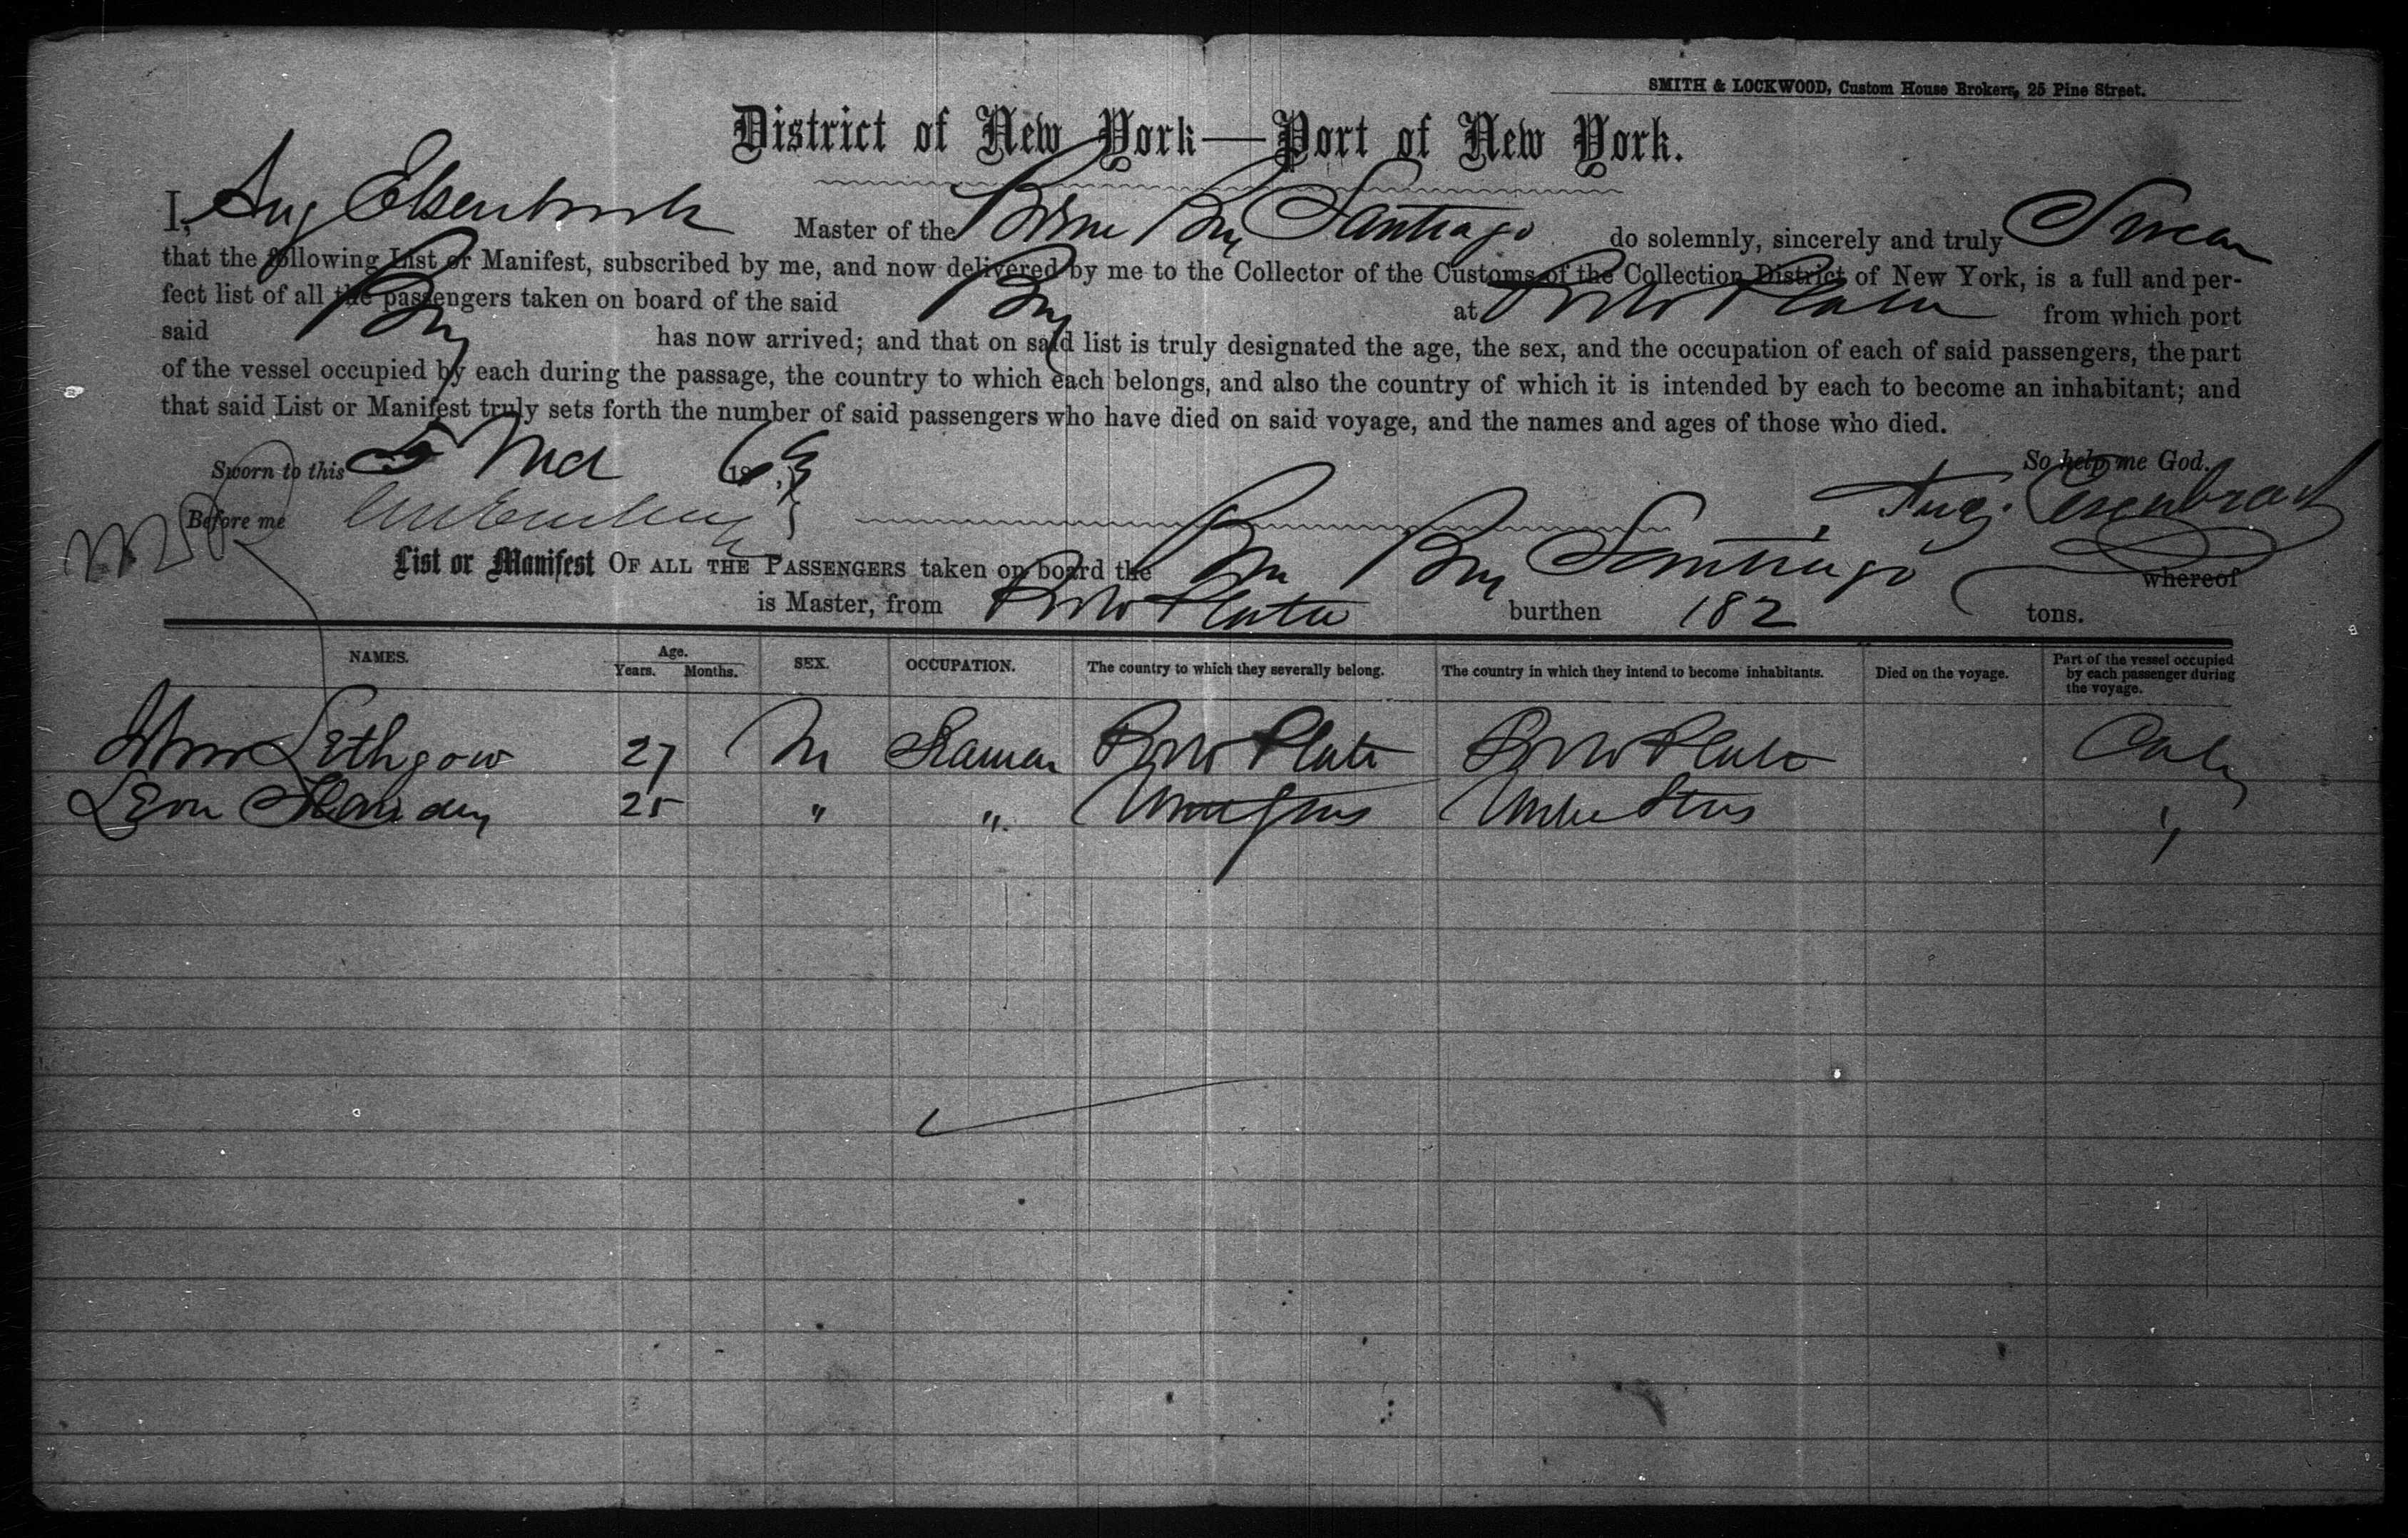 SMITH & LOCKWOOD, Custom House Brokers, 25 Pine Street.
District of New York—Port of New York.
I, Aug Master of the Brem Brig Santiago do solemnly, sincerely and truly Swear
that the following List or Manifest, subscribed by me, and now delivered by me to the Collector of the Customs of the Collection District of New York, is a full and per-
fect list of all the passengers taken on board of the said Brig at Porto Plata from which port
said Brig has now arrived; and that on said list is truly designated the age, the sex, and the occupation of each of said passengers, the part
of the vessel occupied by each during the passage, the country to which each belongs, and also the country of which it is intended by each to become an inhabitant; and
that said List or Manifest truly sets forth the number of said passengers who have died on said voyage, and the names and ages of those who died.
Sworn to this 5 1869 So help me God.
Before me Aug.
List or Manifest OF ALL THE PASSENGERS taken on board the Brig Santiago whereof
is Master, from Porto Plata burthen 182 tons.
NAMES. Age. Years. Months. SEX. OCCUPATION. The country to which they severally belong. The country in which they intend to become inhabitants. Died on the voyage. Part of the vessel occupied by each passenger during the voyage.
Wm Lethgow 27 M Seaman Porto Plata Porto Plata Cabin
Leon 25 " " United States "